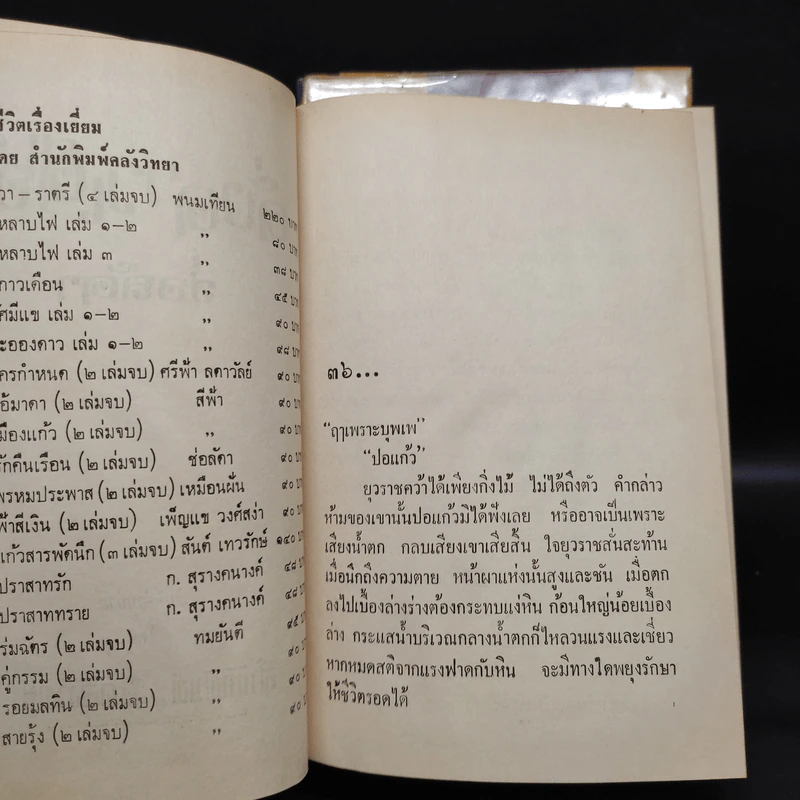 ชีวิตเรื่องเยี่ยม
โดย สำนักพิมพ์คลังวิทยา
วา – ราตรี (๔ เล่มจบ) พนมเทียน ๒๒๐ บาท
หลาบไฟ เล่ม ๑–๒ ,, ๘๐ บาท
หลาบไฟ เล่ม ๓ ,, ๓๘ บาท
กาวเดือน ,, ๔๕ บาท
ศมีแข เล่ม ๑–๒ ,, ๙๐ บาท
ะอองดาว เล่ม ๑–๒ ,, ๙๘ บาท
ครกำหนด (๒ เล่มจบ) ศรีฟ้า ลดาวัลย์ ๙๐ บาท
อ้มาดา (๒ เล่มจบ) สีฟ้า ๙๐ บาท
มืองแก้ว (๒ เล่มจบ) ,, ๙๐ บาท
รักคืนเรือน (๒ เล่มจบ) ช่อลัดา ๙๐ บาท
พรหมประพาส (๒ เล่มจบ) เหมือนฝัน ๙๐ บาท
ฟ้าสีเงิน (๒ เล่มจบ) เพ็ญแข วงศ์สง่า ๙๐ บาท
แก้วสารพัดนึก (๓ เล่มจบ) สันต์ เทวรักษ์ ๑๔๐ บาท
ปราสาทรัก ก. สุรางคนางค์ ๔๘ บาท
ปราสาททราย ก. สุรางคนางค์ ๔๘ บาท
ร่มฉัตร (๒ เล่มจบ) ทมยันตี ๙๕ บาท
คู่กรรม (๒ เล่มจบ) ,, ๙๐ บาท
รอยมลทิน (๒ เล่มจบ) ,, ๙๐ บ
สายรุ้ง (๒ เล่มจบ) ,,
๓๖...
“ฤๅเพราะบุพเพ”
“ปอแก้ว”
ยุวราชคว้าได้เพียงกิ่งไม้ ไม่ได้ถึงตัว คำกล่าว
ห้ามของเขานั้นปอแก้วมิได้ฟังเลย หรืออาจเป็นเพราะ
เสียงน้ำตก กลบเสียงเขาเสียสิ้น ใจยุวราชสั่นสะท้าน
เมื่อนึกถึงความตาย หน้าผาแห่งนั้นสูงและชัน เมื่อตก
ลงไปเบื้องล่างร่างต้องกระทบแง่หิน ก้อนใหญ่น้อยเบื้อง
ล่าง กระแสน้ำบริเวณกลางน้ำตกก็ไหลวนแรงและเชี่ยว
หากหมดสติจากแรงฟาดกับหิน จะมีทางใดพยุงรักษา
ให้ชีวิตรอดได้